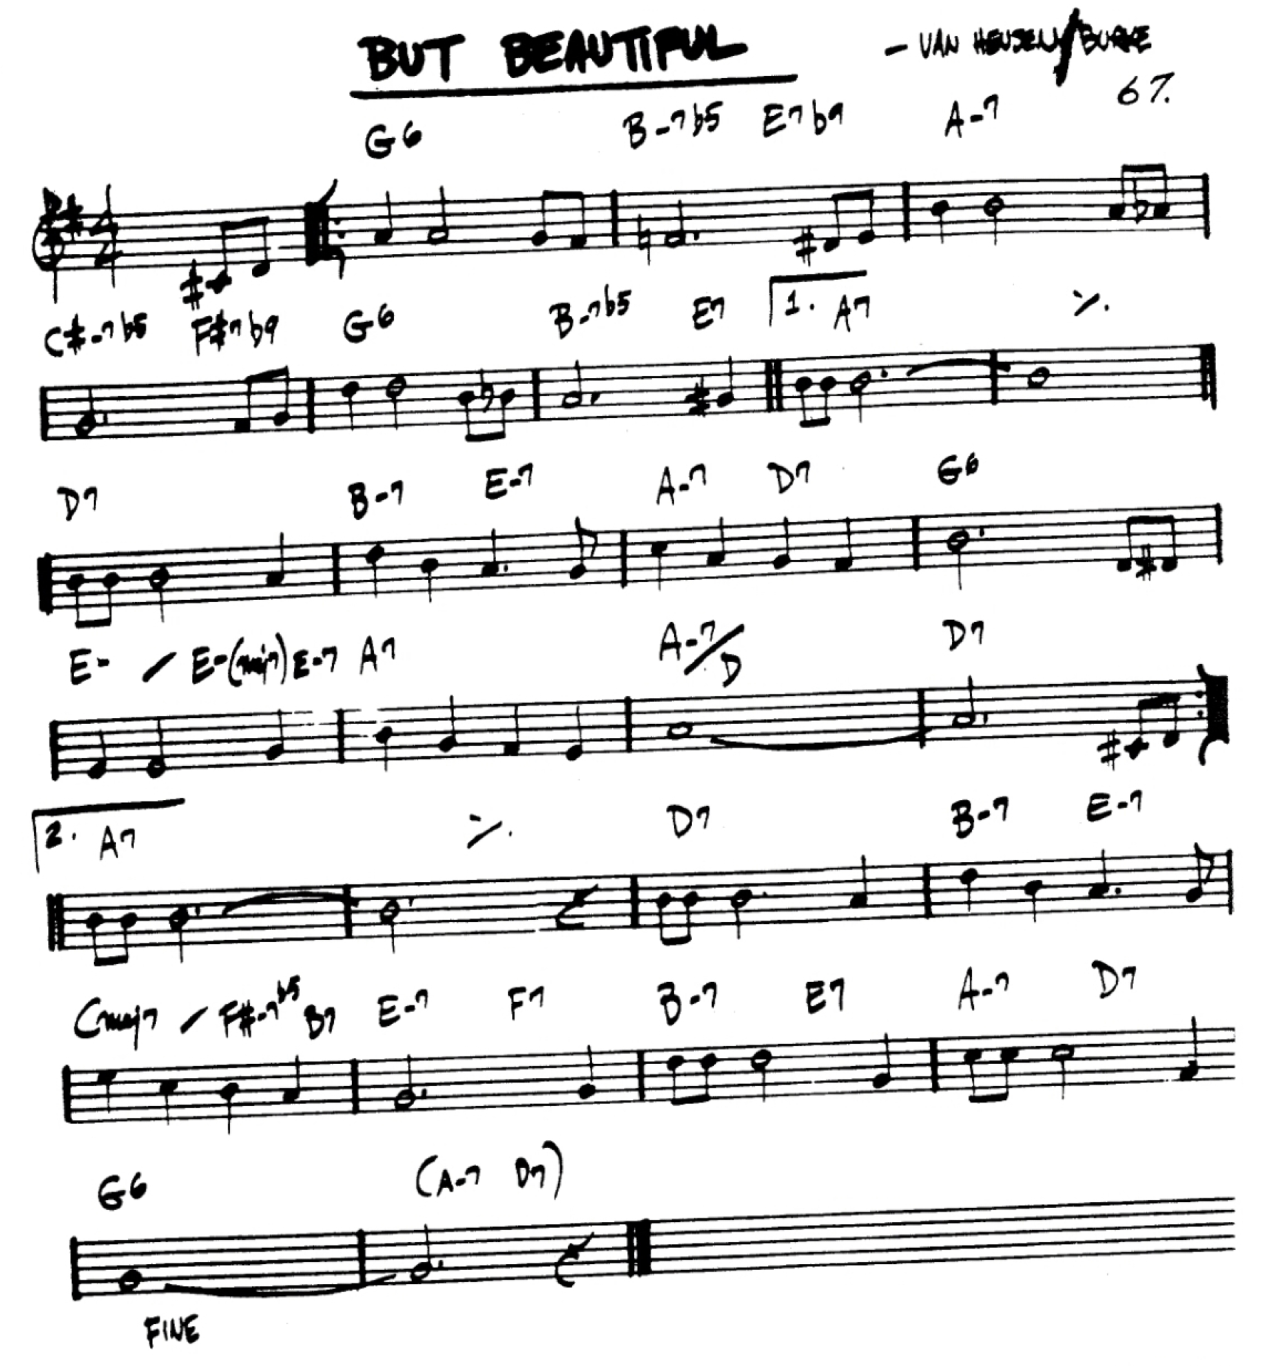 BUT BEAUTIFUL - VAN HEUSEN/BURKE
67.
G6 B-7b5 E7b9 A-7
C#-7b5 F#7b9 G6 B-7b5 E7 1. A7 ٪
D7 B-7 E-7 A-7 D7 G6
E- / E-(maj7) E-7 A7 A-7/D D7
2. A7 ٪ D7 B-7 E-7
Cmaj7 / F#-7b5 B7 E-7 F7 B-7 E7 A-7 D7
G6 (A-7 D7)
FINE